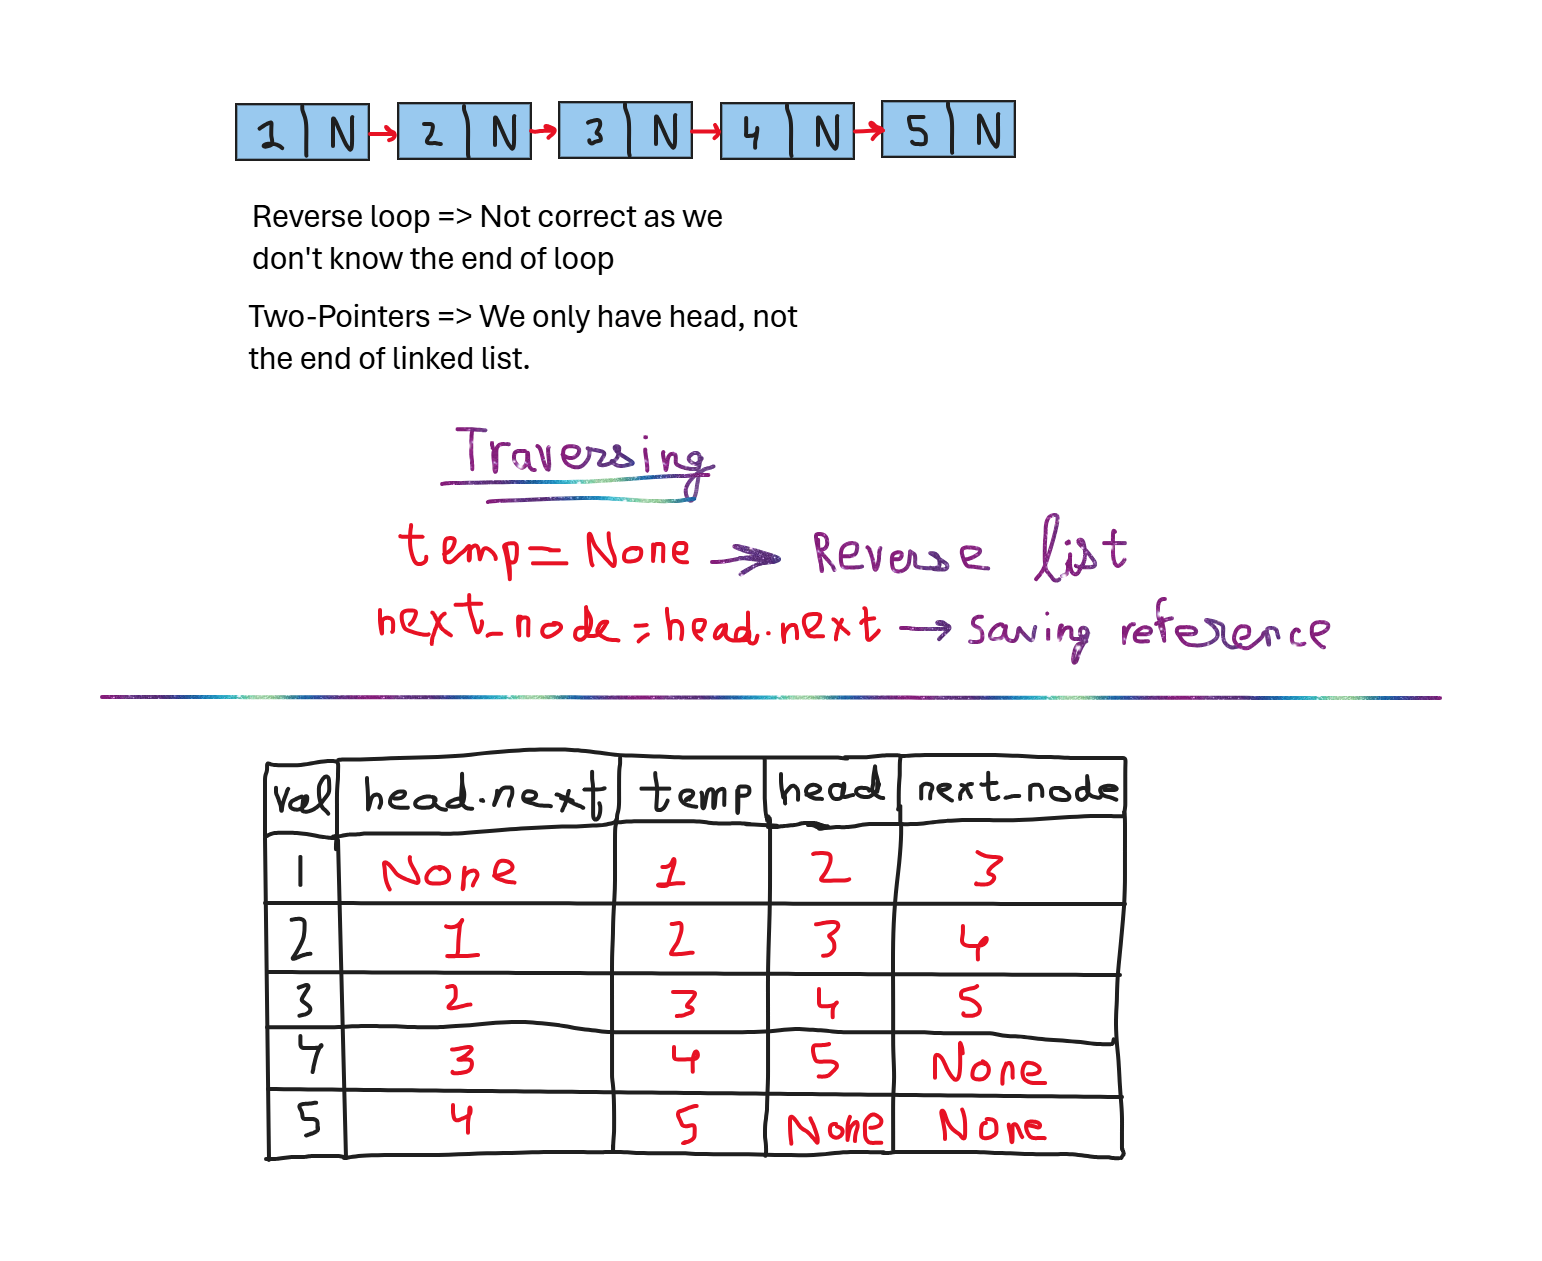 1 N 2 N 3 N 4 N 5 N
Reverse loop => Not correct as we
don't know the end of loop
Two-Pointers => We only have head, not
the end of linked list.
Traversing
temp = None → Reverse list
next_node = head.next → saving reference
val head.next temp head next_node
1 None 1 2 3
2 1 2 3 4
3 2 3 4 5
4 3 4 5 None
5 4 5 None None